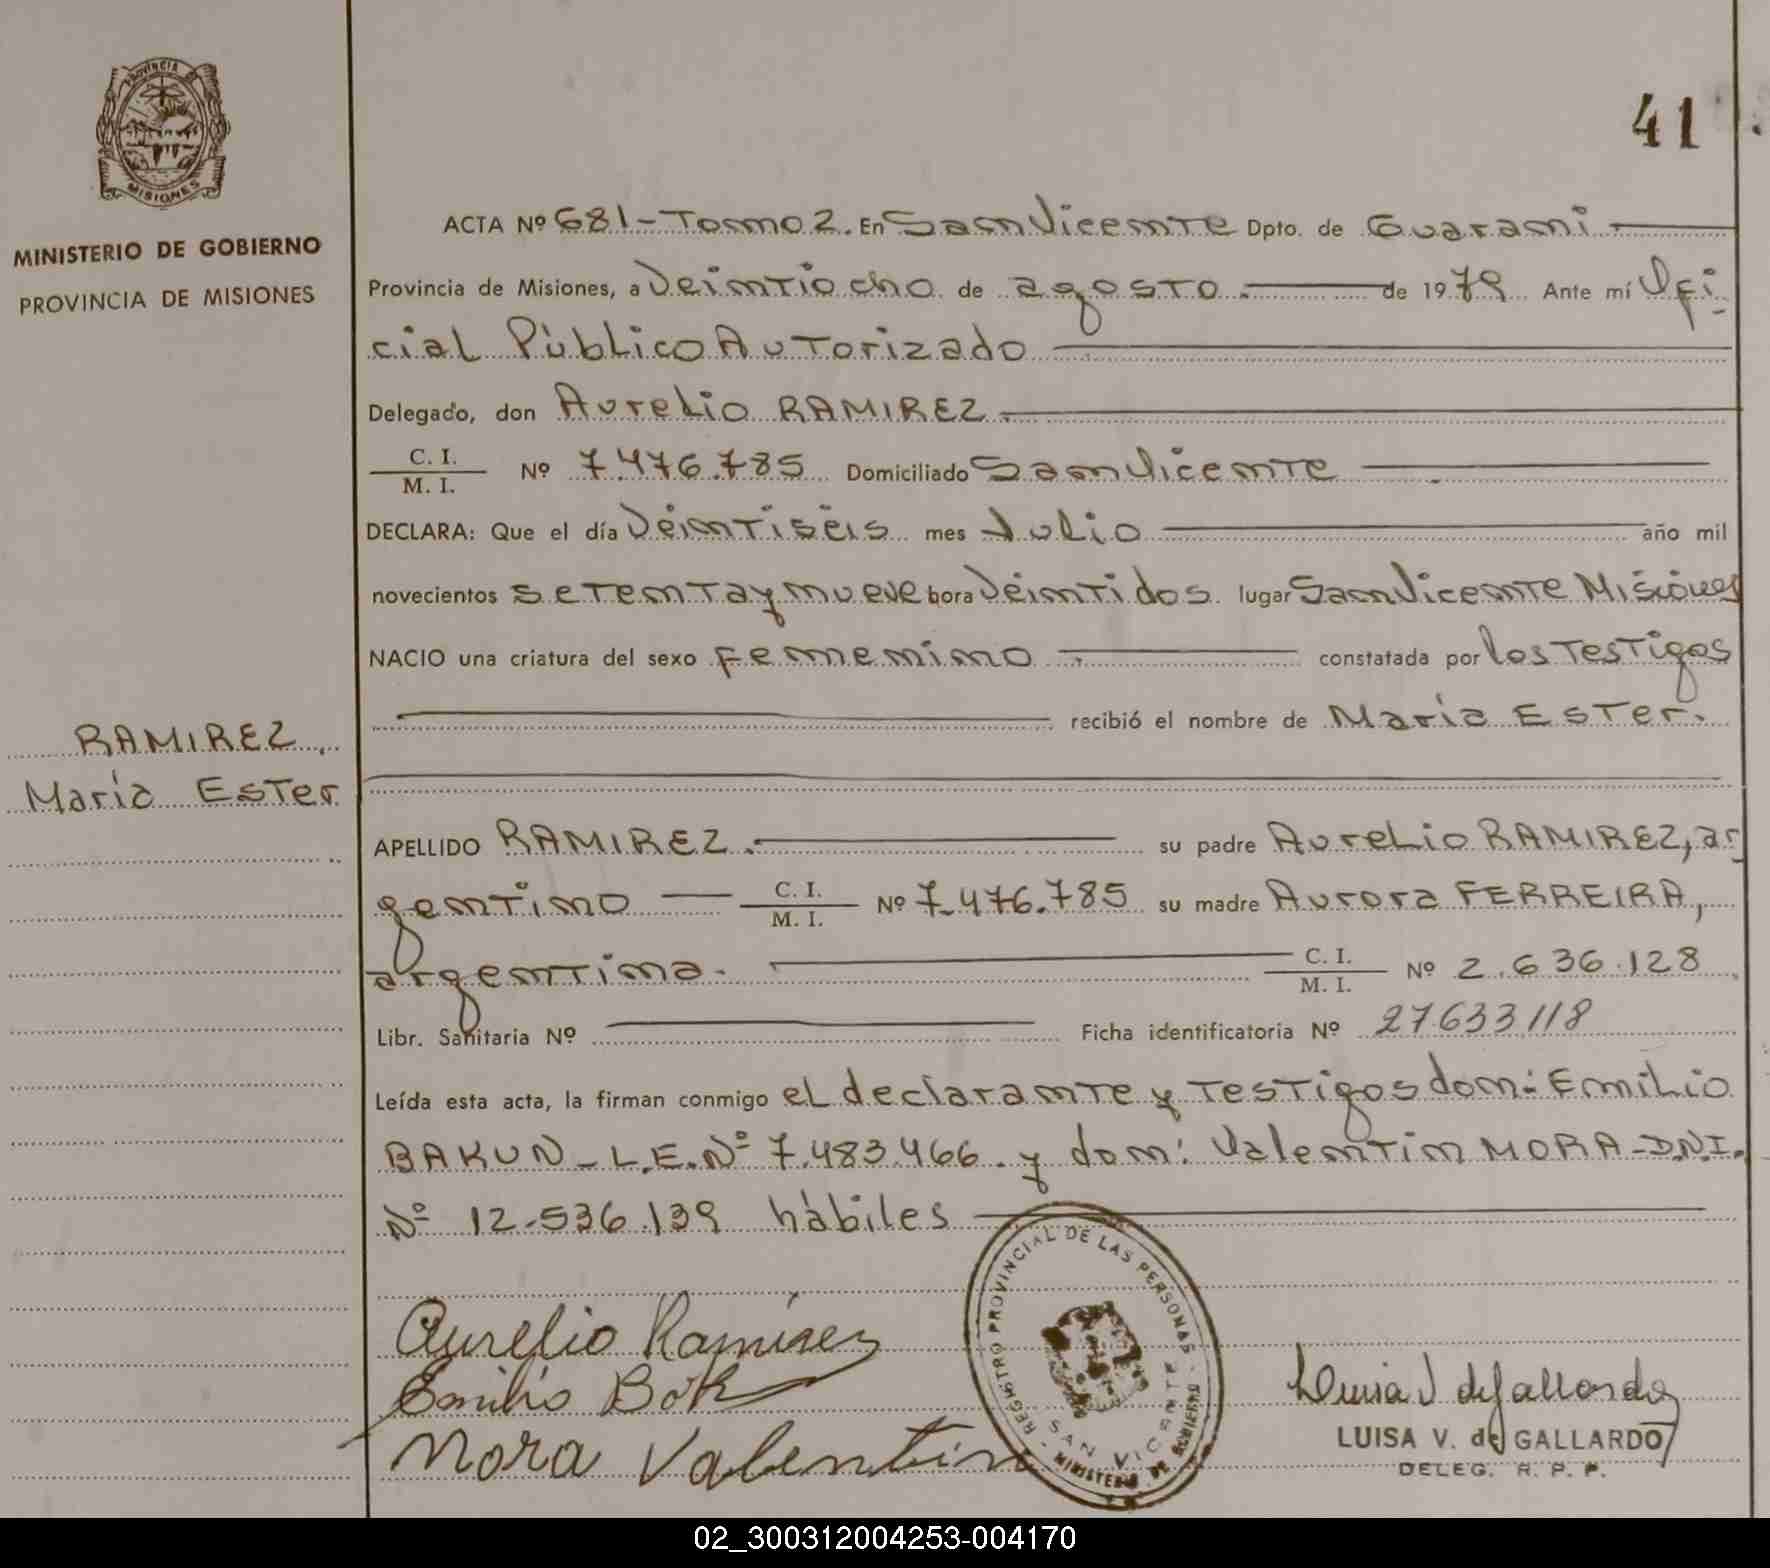 PROVINCIA DE
MISIONES
MINISTERIO DE GOBIERNO
PROVINCIA DE MISIONES
41
ACTA Nº 681 - Tomo 2. En San Vicente Dpto. de Guarani
Provincia de Misiones, a Veintiocho de agosto. de 1979 Ante mí Ofi
cial Público Autorizado
Delegado, don Aurelio RAMIREZ
C. I.
M. I. Nº 7.476.785 Domiciliado San Vicente
DECLARA: Que el día Veintiséis mes Julio año mil
novecientos setenta y nueve hora Veintidos. lugar San Vicente Misiones
NACIO una criatura del sexo femenino constatada por los testigos
recibió el nombre de María Ester.
RAMIREZ,
María Ester
APELLIDO RAMIREZ. su padre Aurelio RAMIREZ, ar
gentino C. I.
M. I. Nº 7.476.785 su madre Aurora FERREIRA,
argentina. C. I.
M. I. Nº 2.636.128
Libr. Sanitaria Nº Ficha identificatoria Nº 27633118
Leída esta acta, la firman conmigo el declarante y testigos don: Emilio
BAKUN - L.E. Nº 7.483.466. y don: Valentín MORA - D.N.I.
Nº 12.536.139 hábiles
REGISTRO PROVINCIAL DE LAS PERSONAS
SAN VICENTE
MINISTERIO DE GOBIERNO
Aurelio Ramirez
Emilio
Mora Valentin
Luisa V de Gallardo
LUISA V. de GALLARDO
DELEG. R. P. P.
02_300312004253-004170